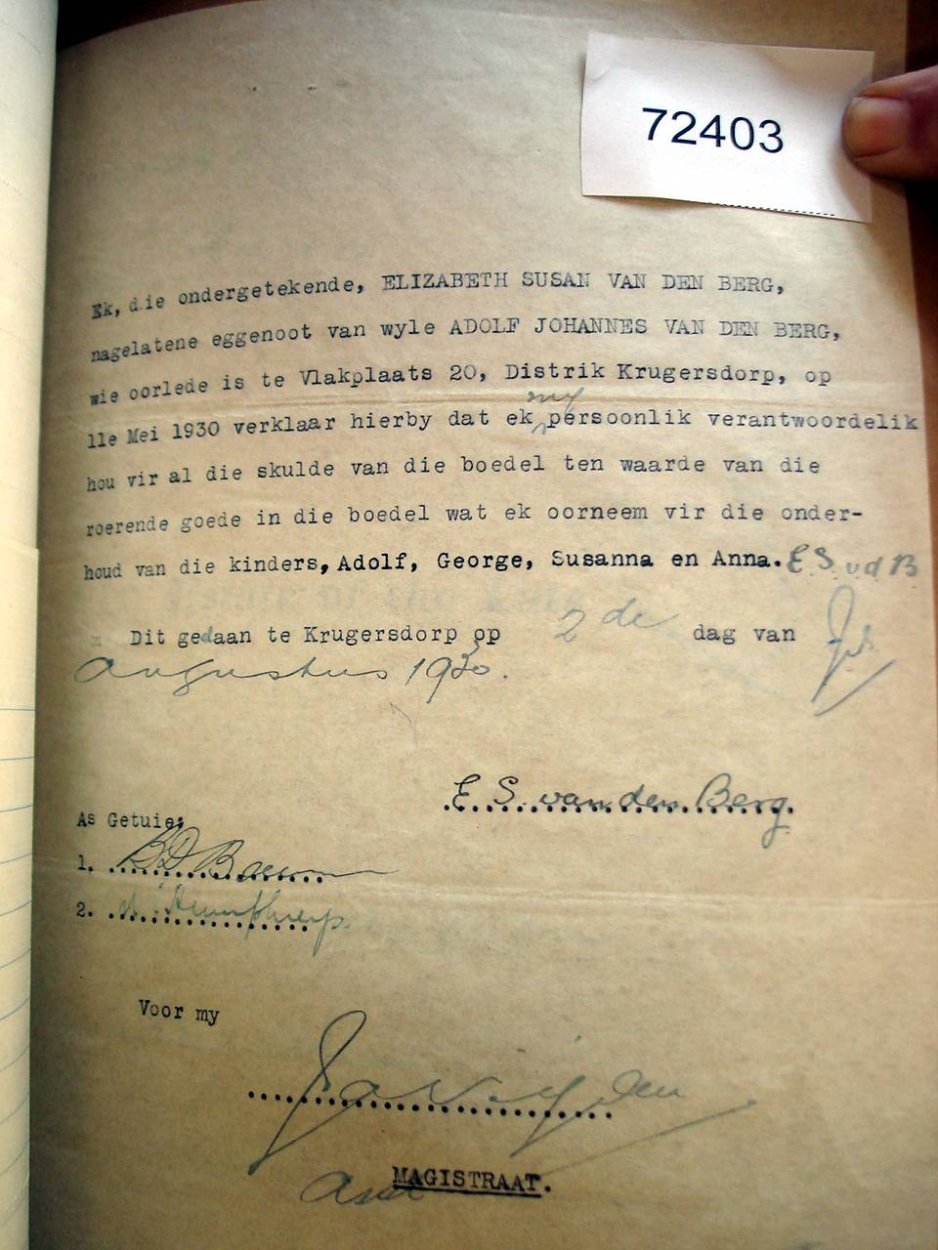 72403
Ek, die ondergetekende, ELIZABETH SUSAN VAN DEN BERG,
nagelatene eggenoot van wyle ADOLF JOHANNES VAN DEN BERG,
wie oorlede is te Vlakplaats 20, Distrik Krugersdorp, op
my
11e Mei 1930 verklaar hierby dat ek persoonlik verantwoordelik
hou vir al die skulde van die boedel ten waarde van die
roerende goede in die boedel wat ek oorneem vir die onder-
houd van die kinders, Adolf, George, Susanna en Anna. E S v d B
Dit gedaan te Krugersdorp op 2de dag van
Augustus 1930.
E. S. van den Berg
As Getuie:
1.
2.
Voor my
Asst MAGISTRAAT.